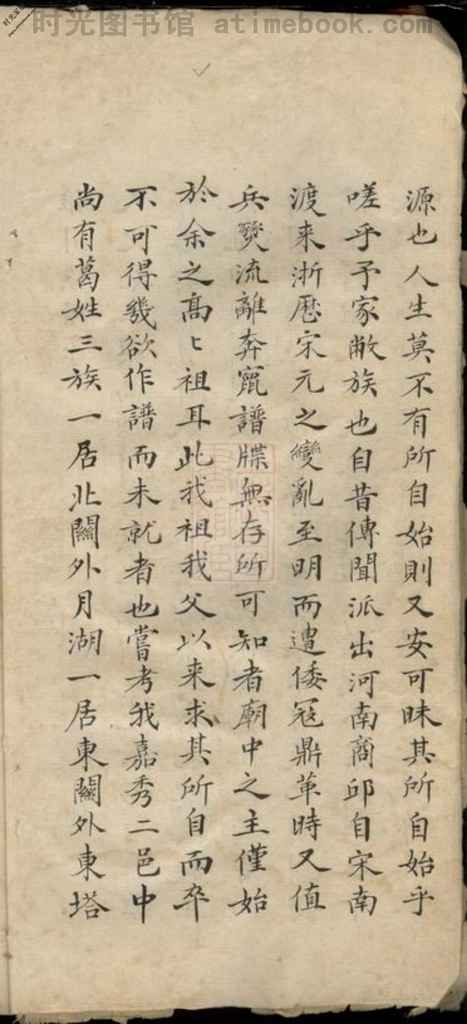 时光图书馆 atimebook.com
源也人生莫不有所自始則又安可昧其所自始乎
嗟乎予家敝族也自昔傳聞派出河南商邱自宋南
渡来浙歷宋元之變亂至明而遭倭寇鼎革時又值
兵燹流離奔竄譜牒無存所可知者廟中之主僅始
於余之高々祖耳此我祖我父以来求其所自而卒
不可得幾欲作譜而未就者也嘗考我嘉秀二邑中
尚有葛姓三族一居北關外月湖一居東關外東塔